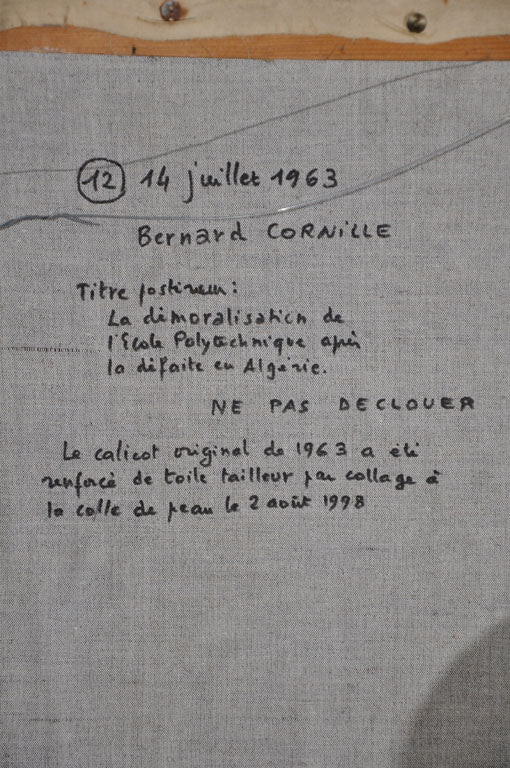 12 14 juillet 1963
Bernard CORNILLE
Titre postérieur :
La démoralisation de
l'Ecole Polytechnique après
la défaite en Algérie.
NE PAS DECLOUER
Le calicot original de 1963 a été
renforcé de toile tailleur par collage à
la colle de peau le 2 août 1998